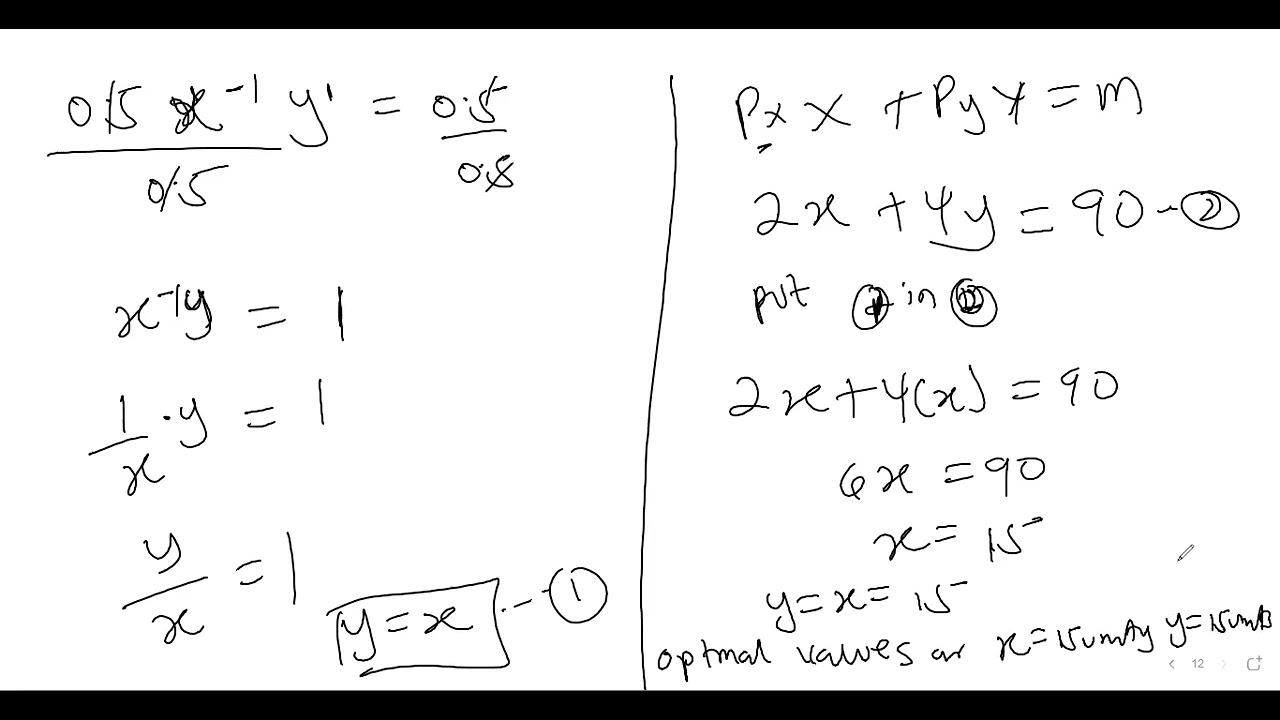 0.5 x⁻¹ y¹ = 0.5
0.5 0.5
x⁻¹y = 1
1/x · y = 1
y/x = 1
y = x --- ①
Px X + Py Y = m
2x + 4y = 90 - ②
put ① in ②
2x + 4(x) = 90
6x = 90
x = 15
y = x = 15
optmal values ar x = 15 y = 15
12